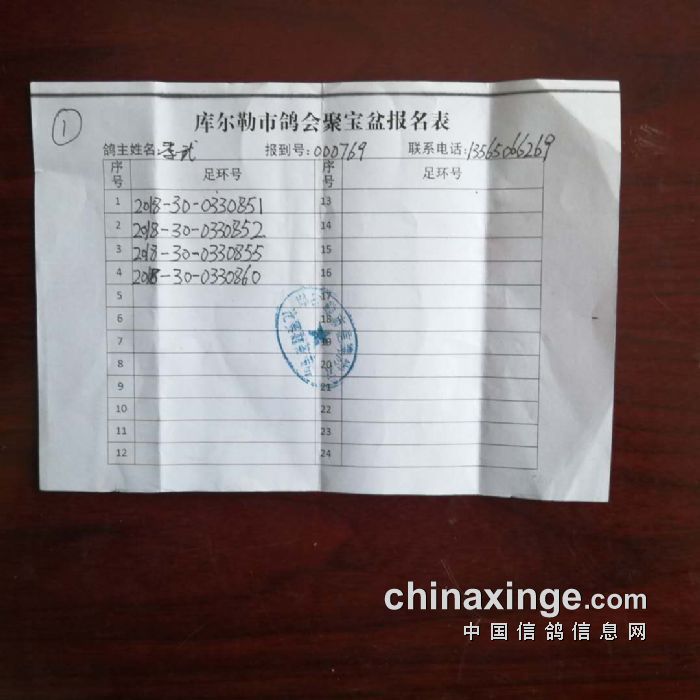 ①
库尔勒市鸽会聚宝盆报名表
鸽主姓名:李武 报到号:000769 联系电话:13565066269
序号 足环号 序号 足环号
1 2018-30-0330851 13
2 2018-30-0330852 14
3 2018-30-0330855 15
4 2018-30-0330860 16
5 17
6 18
7 19
8 20
9 21
10 22
11 23
12 24
chinaxinge.com
中国信鸽信息网